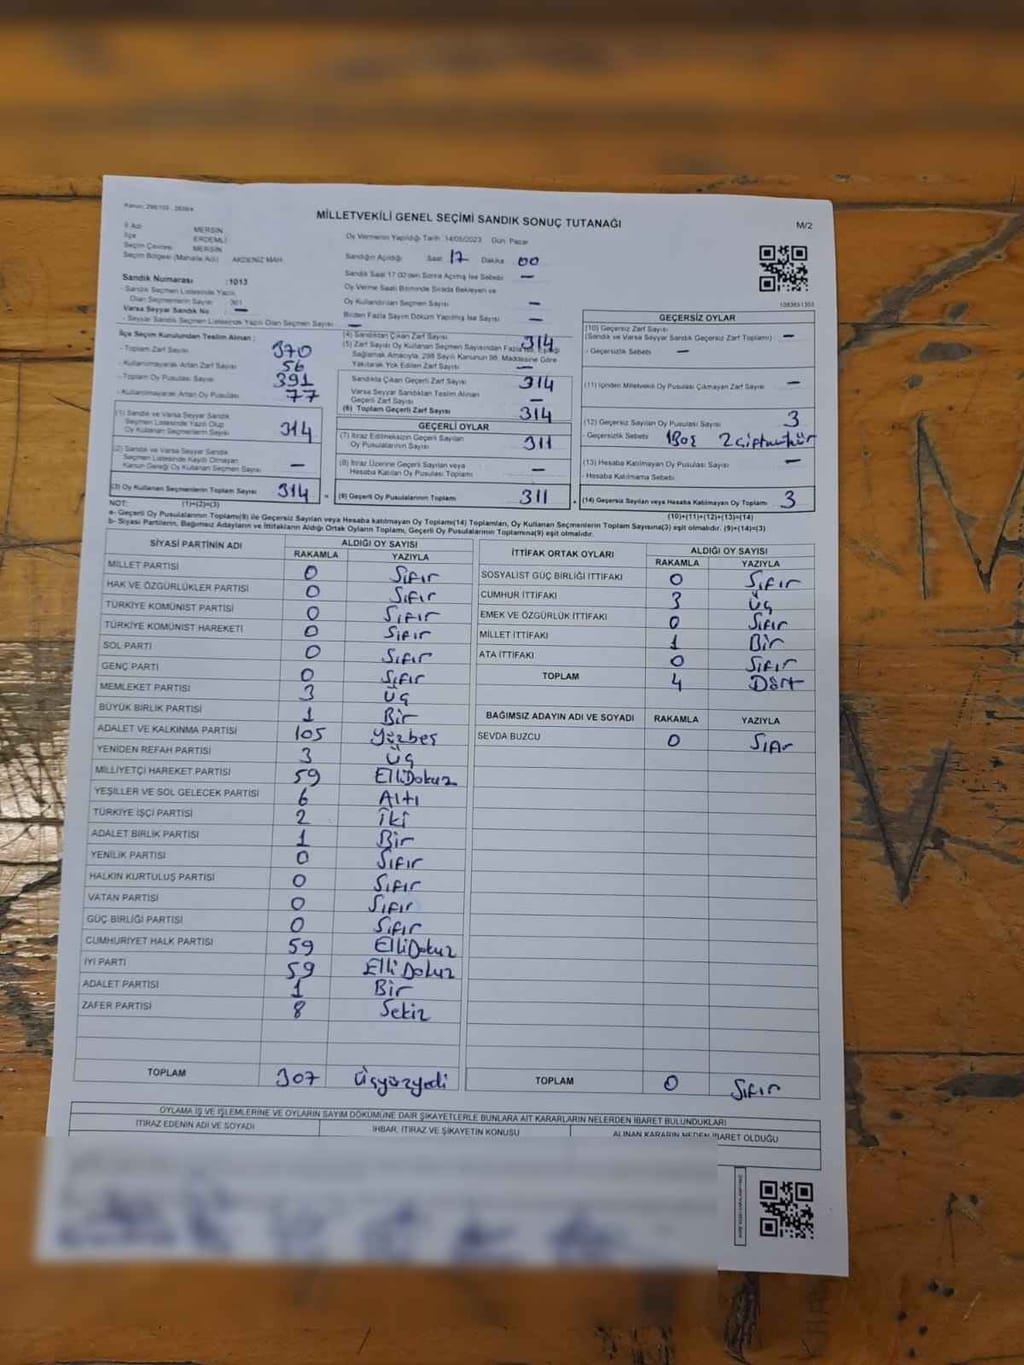 MİLLETVEKİLİ GENEL SEÇİMİ SANDIK SONUÇ TUTANAĞI
M/2
İl Adı MERSİN
İlçe ERDEMLİ
Seçim Çevresi MERSİN
Seçim Bölgesi (Mahalle Adı) AKDENİZ MAH
Oy Vermenin Yapıldığı Tarih :14/05/2023 Gün: Pazar
Sandığın Açıldığı Saat 17 Dakika 00
Sandık Saat 17:00'den Sonra Açılmış İse Sebebi —
Oy Verme Saati Bitiminde Sırada Bekleyen ve
Oy Kullandırılan Seçmen Sayısı —
Birden Fazla Sayım Döküm Yapılmış İse Sayısı —
Sandık Numarası :1013
- Sandık Seçmen Listesinde Yazılı
Olan Seçmenlerin Sayısı
Varsa Seyyar Sandık No —
- Seyyar Sandık Seçmen Listesinde Yazılı Olan Seçmen Sayısı —
İlçe Seçim Kurulundan Teslim Alınan
- Toplam Zarf Sayısı 370
- Kullanılmayarak Artan Zarf Sayısı 56
- Toplam Oy Pusulası Sayısı 391
- Kullanılmayarak Artan Oy Pusulası 77
(1) Sandık ve Varsa Seyyar Sandık
Seçmen Listesinde Yazılı Olup
Oy Kullanan Seçmenlerin Sayısı 314
(2) Sandık ve Varsa Seyyar Sandık
Seçmen Listesinde Kayıtlı Olmayan
Kanun Gereği Oy Kullanan Seçmen Sayısı —
(3) Oy Kullanan Seçmenlerin Toplam Sayısı 314
(1)+(2)=(3)
(4) Sandıktan Çıkan Zarf Sayısı 314
(5) Zarf Sayısı Oy Kullanan Seçmen Sayısından Fazla İse, Eşitliği
Sağlamak Amacıyla, 298 Sayılı Kanunun 98. Maddesine Göre
Yakılarak Yok Edilen Zarf Sayısı —
Sandıkta Çıkan Geçerli Zarf Sayısı 314
Varsa Seyyar Sandıktan Teslim Alınan
Geçerli Zarf Sayısı —
(6) Toplam Geçerli Zarf Sayısı 314
GEÇERLİ OYLAR
(7) İtiraz Edilmeksizin Geçerli Sayılan
Oy Pusulalarının Sayısı 311
(8) İtiraz Üzerine Geçerli Sayılan veya
Hesaba Katılan Oy Pusulası Toplamı —
(9) Geçerli Oy Pusulalarının Toplamı 311
GEÇERSİZ OYLAR
(10) Geçersiz Zarf Sayısı
(Sandık ve Varsa Seyyar Sandık Geçersiz Zarf Toplamı) —
- Geçersizlik Sebebi —
(11) İçinden Milletvekili Oy Pusulası Çıkmayan Zarf Sayısı —
(12) Geçersiz Sayılan Oy Pusulası Sayısı 3
- Geçersizlik Sebebi 1Boş
(13) Hesaba Katılmayan Oy Pusulası Sayısı —
- Hesaba Katılmama Sebebi
(14) Geçersiz Sayılan veya Hesaba Katılmayan Oy Toplamı 3
(10)+(11)+(12)+(13)=(14)
NOT:
a- Geçerli Oy Pusulalarının Toplamı(9) ile Geçersiz Sayılan veya Hesaba katılmayan Oy Toplamı(14) Toplamları, Oy Kullanan Seçmenlerin Toplam Sayısına(3) eşit olmalıdır. (9)+(14)=(3)
b- Siyasi Partilerin, Bağımsız Adayların ve İttifakların Aldığı Ortak Oyların Toplamı, Geçerli Oy Pusulalarının Toplamına(9) eşit olmalıdır.
SİYASİ PARTİNİN ADI ALDIĞI OY SAYISI
RAKAMLA YAZIYLA
MİLLET PARTİSİ 0 Sıfır
HAK VE ÖZGÜRLÜKLER PARTİSİ 0 Sıfır
TÜRKİYE KOMÜNİST PARTİSİ 0 Sıfır
TÜRKİYE KOMÜNİST HAREKETİ 0 Sıfır
SOL PARTİ 0 Sıfır
GENÇ PARTİ 0 Sıfır
MEMLEKET PARTİSİ 3 Üç
BÜYÜK BİRLİK PARTİSİ 1 Bir
ADALET VE KALKINMA PARTİSİ 105 Yüzbeş
YENİDEN REFAH PARTİSİ 3 Üç
MİLLİYETÇİ HAREKET PARTİSİ 59 ElliDokuz
YEŞİLLER VE SOL GELECEK PARTİSİ 6 Altı
TÜRKİYE İŞÇİ PARTİSİ 2 İki
ADALET BİRLİK PARTİSİ 1 Bir
YENİLİK PARTİSİ 0 Sıfır
HALKIN KURTULUŞ PARTİSİ 0 Sıfır
VATAN PARTİSİ 0 Sıfır
GÜÇ BİRLİĞİ PARTİSİ 0 Sıfır
CUMHURİYET HALK PARTİSİ 59 ElliDokuz
İYİ PARTİ 59 ElliDokuz
ADALET PARTİSİ 1 Bir
ZAFER PARTİSİ 8 Sekiz
TOPLAM 307 Üçyüzyedi
İTTİFAK ORTAK OYLARI ALDIĞI OY SAYISI
RAKAMLA YAZIYLA
SOSYALİST GÜÇ BİRLİĞİ İTTİFAKI 0 Sıfır
CUMHUR İTTİFAKI 3 Üç
EMEK VE ÖZGÜRLÜK İTTİFAKI 0 Sıfır
MİLLET İTTİFAKI 1 Bir
ATA İTTİFAKI 0 Sıfır
TOPLAM 4 Dört
BAĞIMSIZ ADAYIN ADI VE SOYADI RAKAMLA YAZIYLA
SEVDA BUZCU 0 Sıfır
TOPLAM 0 Sıfır
OYLAMA İŞ VE İŞLEMLERİNE VE OYLARIN SAYIM DÖKÜMÜNE DAİR ŞİKAYETLERLE BUNLARA AİT KARARLARIN NELERDEN İBARET BULUNDUKLARI
İTİRAZ EDENİN ADI VE SOYADI İHBAR, İTİRAZ VE ŞİKAYETİN KONUSU ALINAN KARARIN NEDEN İBARET OLDUĞU